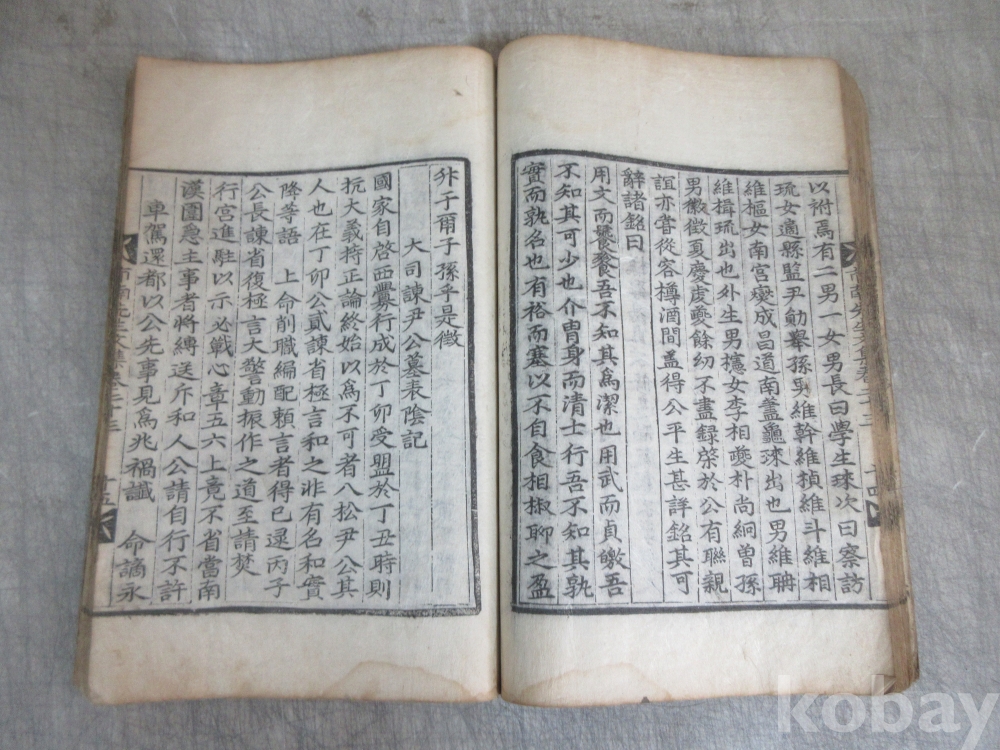 以祔焉有二男一女男長曰學生球次曰察訪
琉女適縣監尹勛擧孫男維幹維楨維斗維相
維樞女南宮褧成昌道南藎龜球出也男維聃
維楫琉出也外生男攇女李相夔朴尚絅曾孫
男徽徵夏慶虔夔餘幼不盡錄棨於公有聯親
誼亦嘗從容樽酒間盖得公平生甚詳銘其可
辭諸銘曰
用文而饕餮吾不知其爲潔也用武而貞皦吾
不知其可少也介冑身而清士行吾不知其孰
實而孰名也有裕而塞以不自食相椒聊之盈
升子爾子孫乎是徵
大司諫尹公墓表陰記
國家自啓西釁行成於丁卯受盟於丁丑時則
抗大義持正論終始以爲不可者八松尹公其
人也在丁卯公貳諫省極言和之非有名和實
降等語 上命削職編配賴言者得已逮丙子
公長諫省復極言大警動振作之道至請焚
行宮進駐以示必戰心章五六上竟不省當南
漢圍急主事者將縛送斥和人公請自行不許
車駕還都以公先事見爲兆禍讖 命謫永
kobay